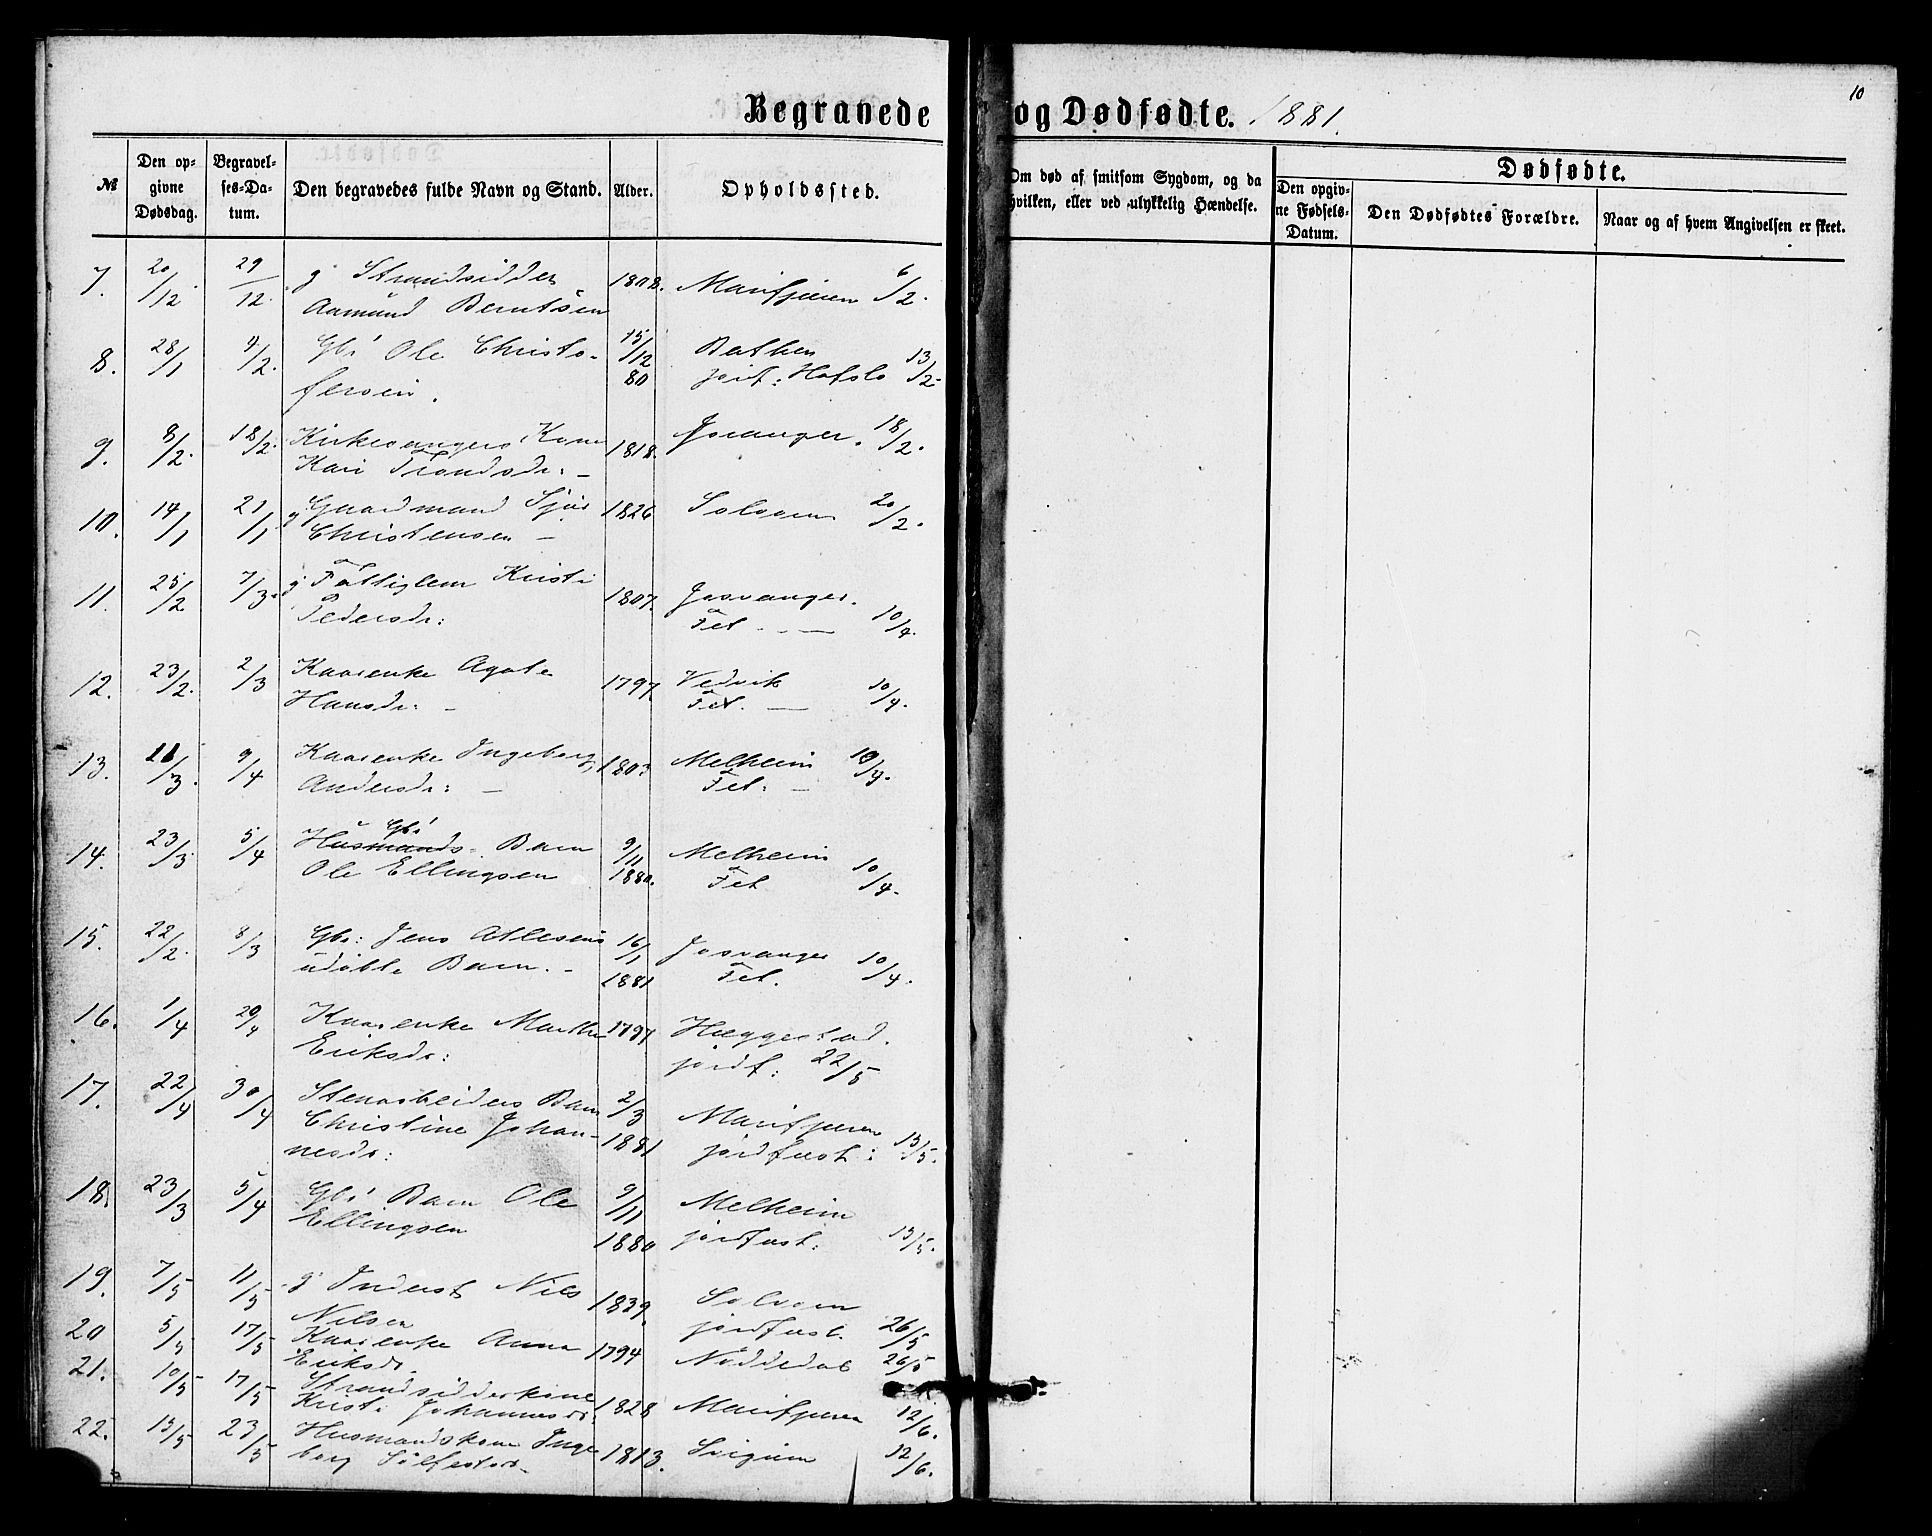 10
Begravede og Dødfødte. 1881.
№
Den opgivne Dødsdag.
Begravelses-Datum.
Den begravedes fulde Navn og Stand.
Alder.
Opholdssted.
Om død af smitsom Sygdom, og da hvilken, eller ved ulykkelig Hændelse.
Dødfødte.
Den opgivne Fødsels-Datum.
Den Dødfødtes Forældre.
Naar og af hvem Angivelsen er skeet.
7. 20/12 29/12. g Strandsidder 1808. Marifjæren 6/2.
Aamund Berntsen
8. 28/1 9/2. Gbr Ole Christo- 15/12 80 Bathen 13/2
fersen. jordf: Hafslo
9. 8/2. 18/2. Kirkesangers Kone 1818. Joranger. 18/2.
Kari Trondsdr: -
10. 14/1 21/1 g Gaardmand Sjur 1826 Solvorn 20/2.
Christensen -
11. 25/2 7/3. g Fattiglem Kristi 1807. Josvanger.
Pedersdr: Fet - - 10/4.
12. 23/2. 2/3 Kaarenke Agate 1797. Vedvik 10/4.
Hansdr: - Fet. -
13. 11/3. 9/4 Kaarenke Ingeborg 1803 Melheim 10/4.
Andersdr: - Fet: -
14. 23/3 5/4 Husmands Gbr Barn 9/11 1880. Melheim 10/4.
Ole Ellingsen Fet
15. 22/2. 8/3 Gbr: Jens Atlesens 16/1 1881 Josvanger 10/4.
udøbte Barn. - Fet.
16. 1/4 20/4 Kaarenke Marthe 1791 Hæggestad.
Eriksdr: jordf: 22/5
17. 22/4 30/4 Stenarbeiders Barn 2/3 1881 Marifjæren 13/5.
Christine Johan- jordfest:
nesdr:
18. 23/3 5/4 Gbr Barn Ole 9/11 1880 Melheim
Ellingsen jordfest: 13/5.
19. 7/5 11/5 g Inderst Nils 1839. Solvorn
Nilsen jordfest. 26/5
20 5/5 17/5 Kaarenke Anna 1794 Nøddedal 26/5
Eriksdr.
21. 10/5 17/5 Strandsidderkone
Kristi Johannesdr. 1828 Marifjæren 12/6.
22. 15/5 23/5 Husmandskone Inge 1813. Svigum 12/6.
borg Sølfestsdr.